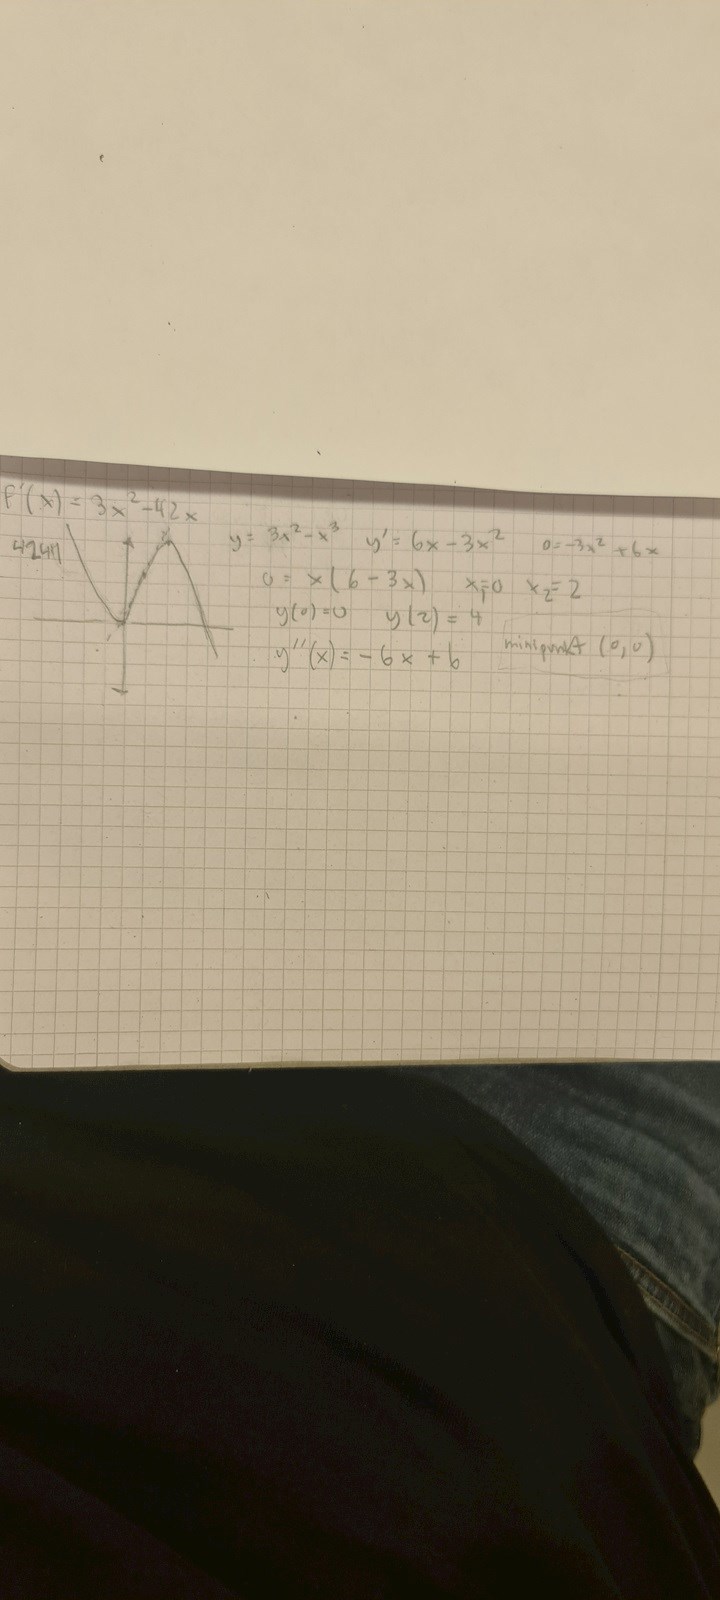 f'(x) = 3x²-42x
y = 3x² - x³ y' = 6x - 3x² 0 = -3x² + 6x
0 = x(6 - 3x) x₁=0 x₂=2
y(0)=0 y(2) = 4
y''(x) = -6x + 6 minipunkt (0,0)